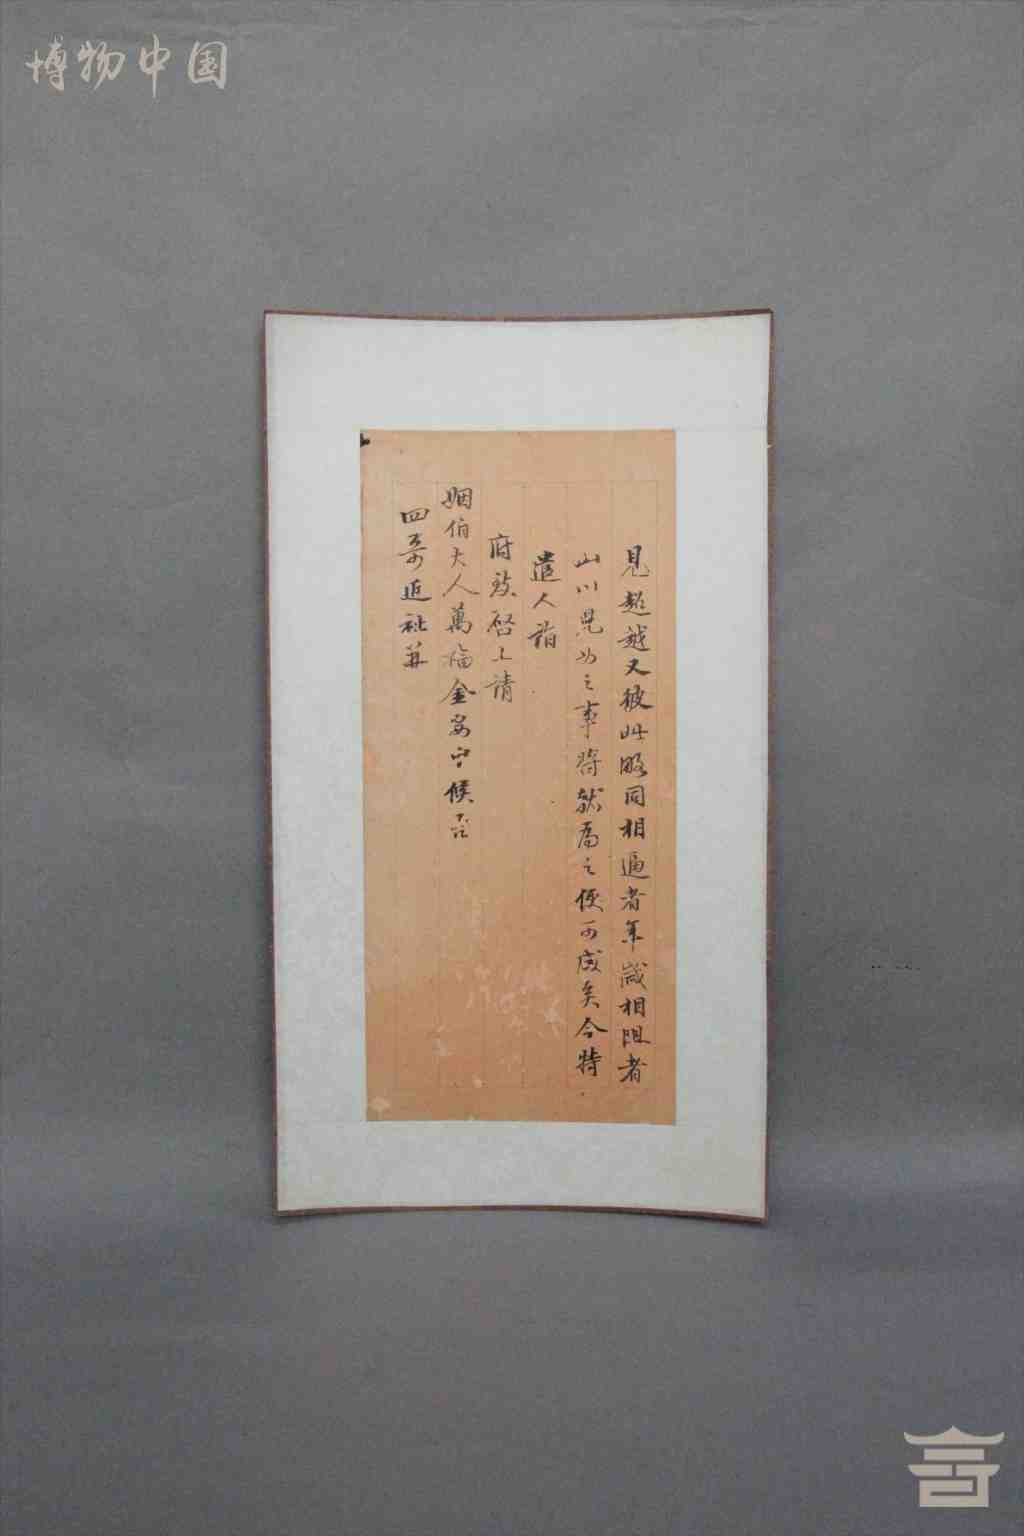 博物中国
見超越又彼此略同相逼者年歲相阻者
山川晃如之事將就爲之便可成矣今特
遣人詣
府致啓上請
姻伯大人萬福金安守候
四哥近祉并